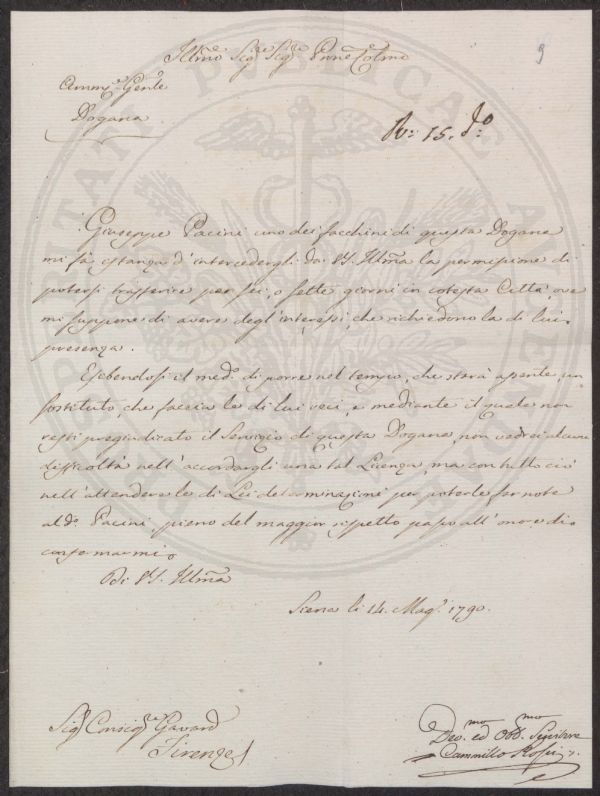 9
Illmo Sigre Sigre Pnne Colmo
Ammne Genle
Dogana
R: 15. do
Giuseppe Pacini uno dei facchini di questa Dogana
mi fà istanza d'intercedergli da VS. Illma la permissione di
potersi trasferire per sei, o sette giorni in cotesta Città, ove
mi suppone di avere degl'interessi, che richiedono la di lui
presenza.
Esebendosi il medo. di porre nel tempo, che starà assente, un
sostituto, che faccia le di lui veci, e mediante il quale non
resti pregiudicato il Servizio di questa Dogana, non vedrei alcuna
difficoltà nell'accordargli una tal Licenza, ma con tutto ciò
nell'attendere le di Lei determinazioni per poterle far note
al do. Pacini, pieno del maggior rispetto passo all'onore di
confermarmi
Di VS. Illma
Siena li 14. Mago. 1790.
Sigre Consigre Gavard
Firenze
Devmo. ed Obbmo. Servitore
Cammillo Rossi
PROSPERITATI PUBLICAE AUGENDAE